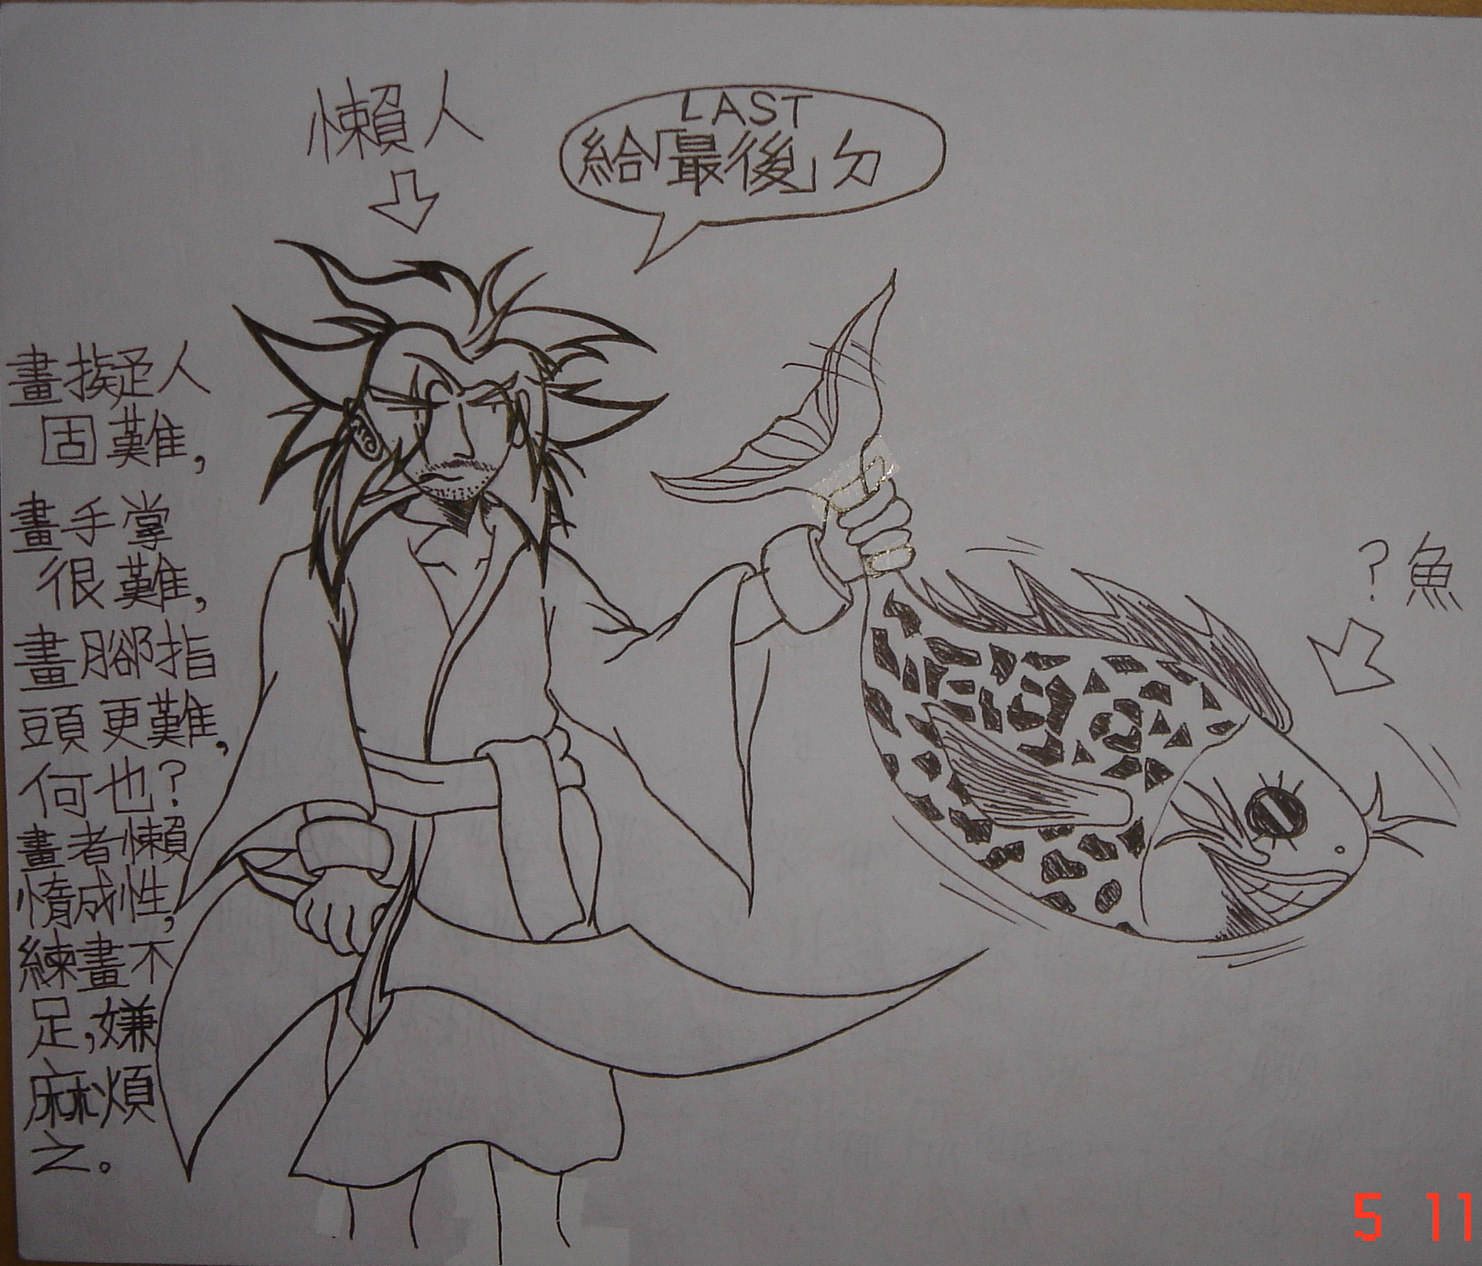 懶人
LAST
給「最後」ㄉ
畫擬人
固難,
畫手掌
很難,
畫腳指
頭更難,
何也?
畫者懶
惰成性,
練畫不
足,嫌
麻煩
之。
?魚
5 11